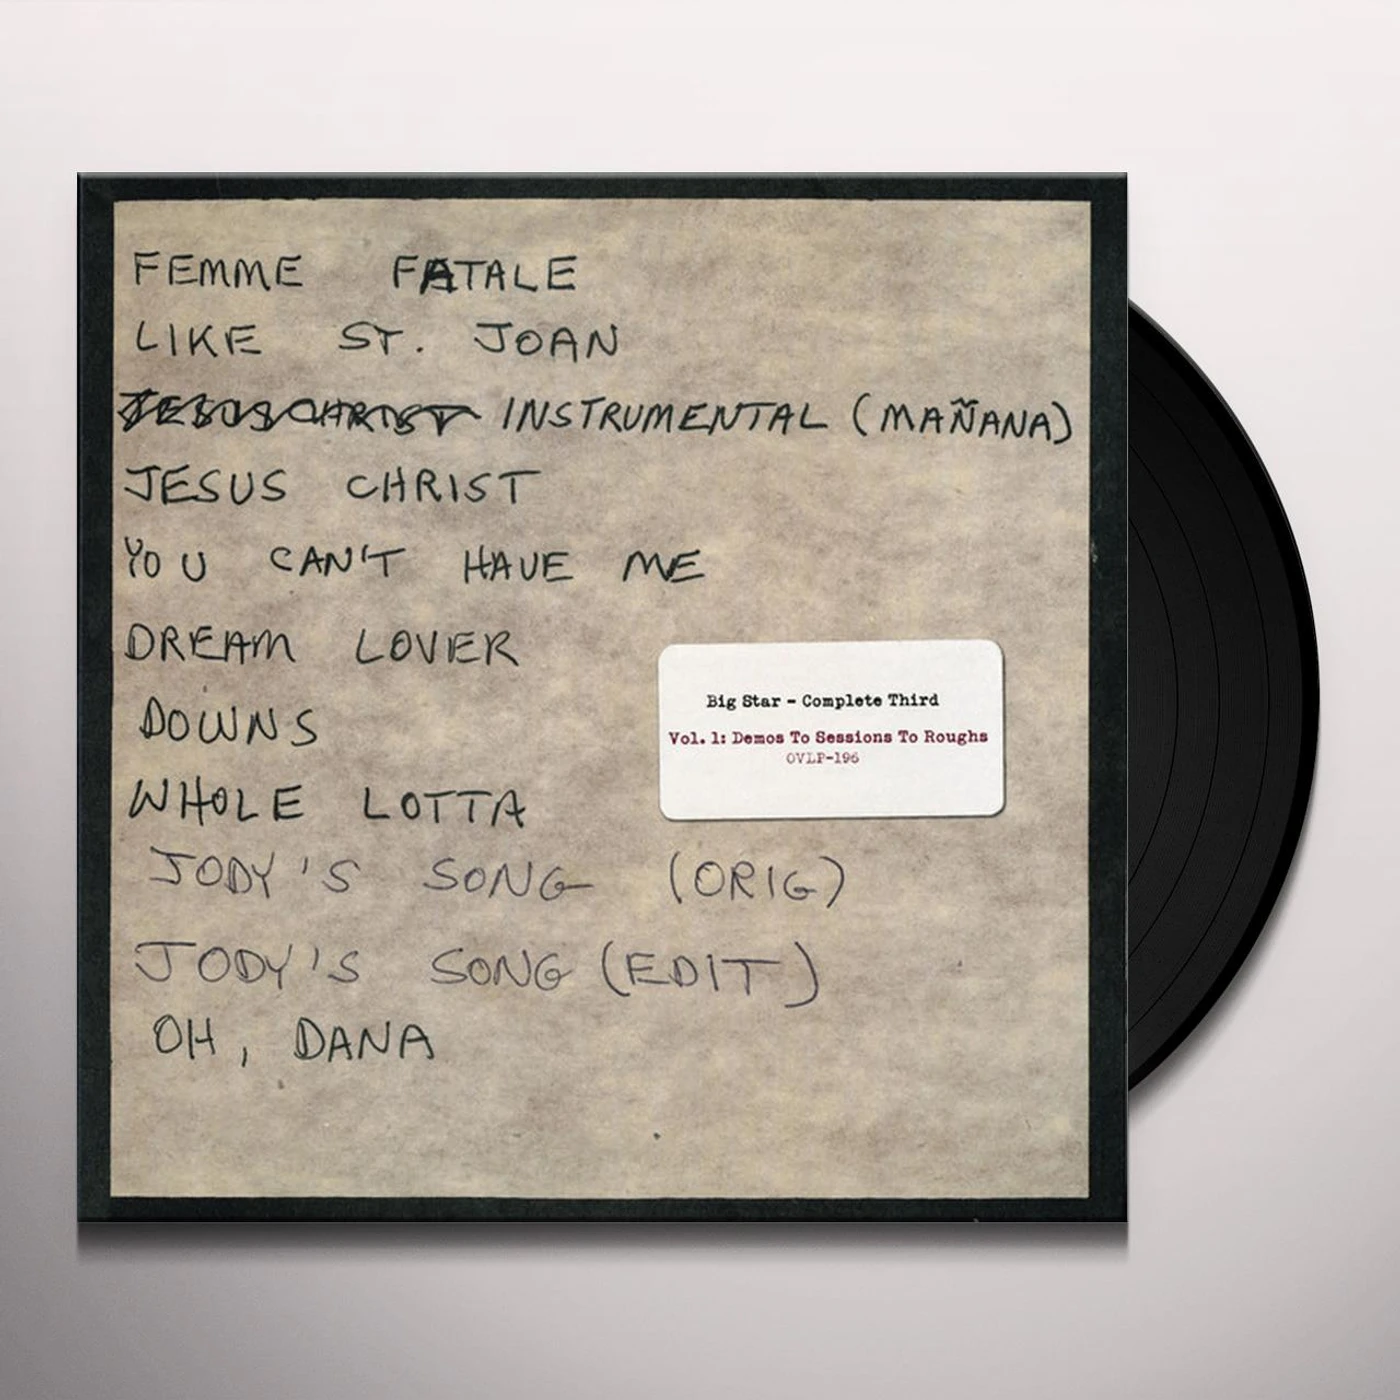 FEMME FATALE
LIKE ST. JOAN
JESUS CHRIST INSTRUMENTAL (MAÑANA)
JESUS CHRIST
YOU CAN'T HAVE ME
DREAM LOVER
DOWNS
WHOLE LOTTA
JODY'S SONG (ORIG)
JODY'S SONG (EDIT)
OH, DANA
Big Star - Complete Third
Vol. 1: Demos To Sessions To Roughs
OVLP-196